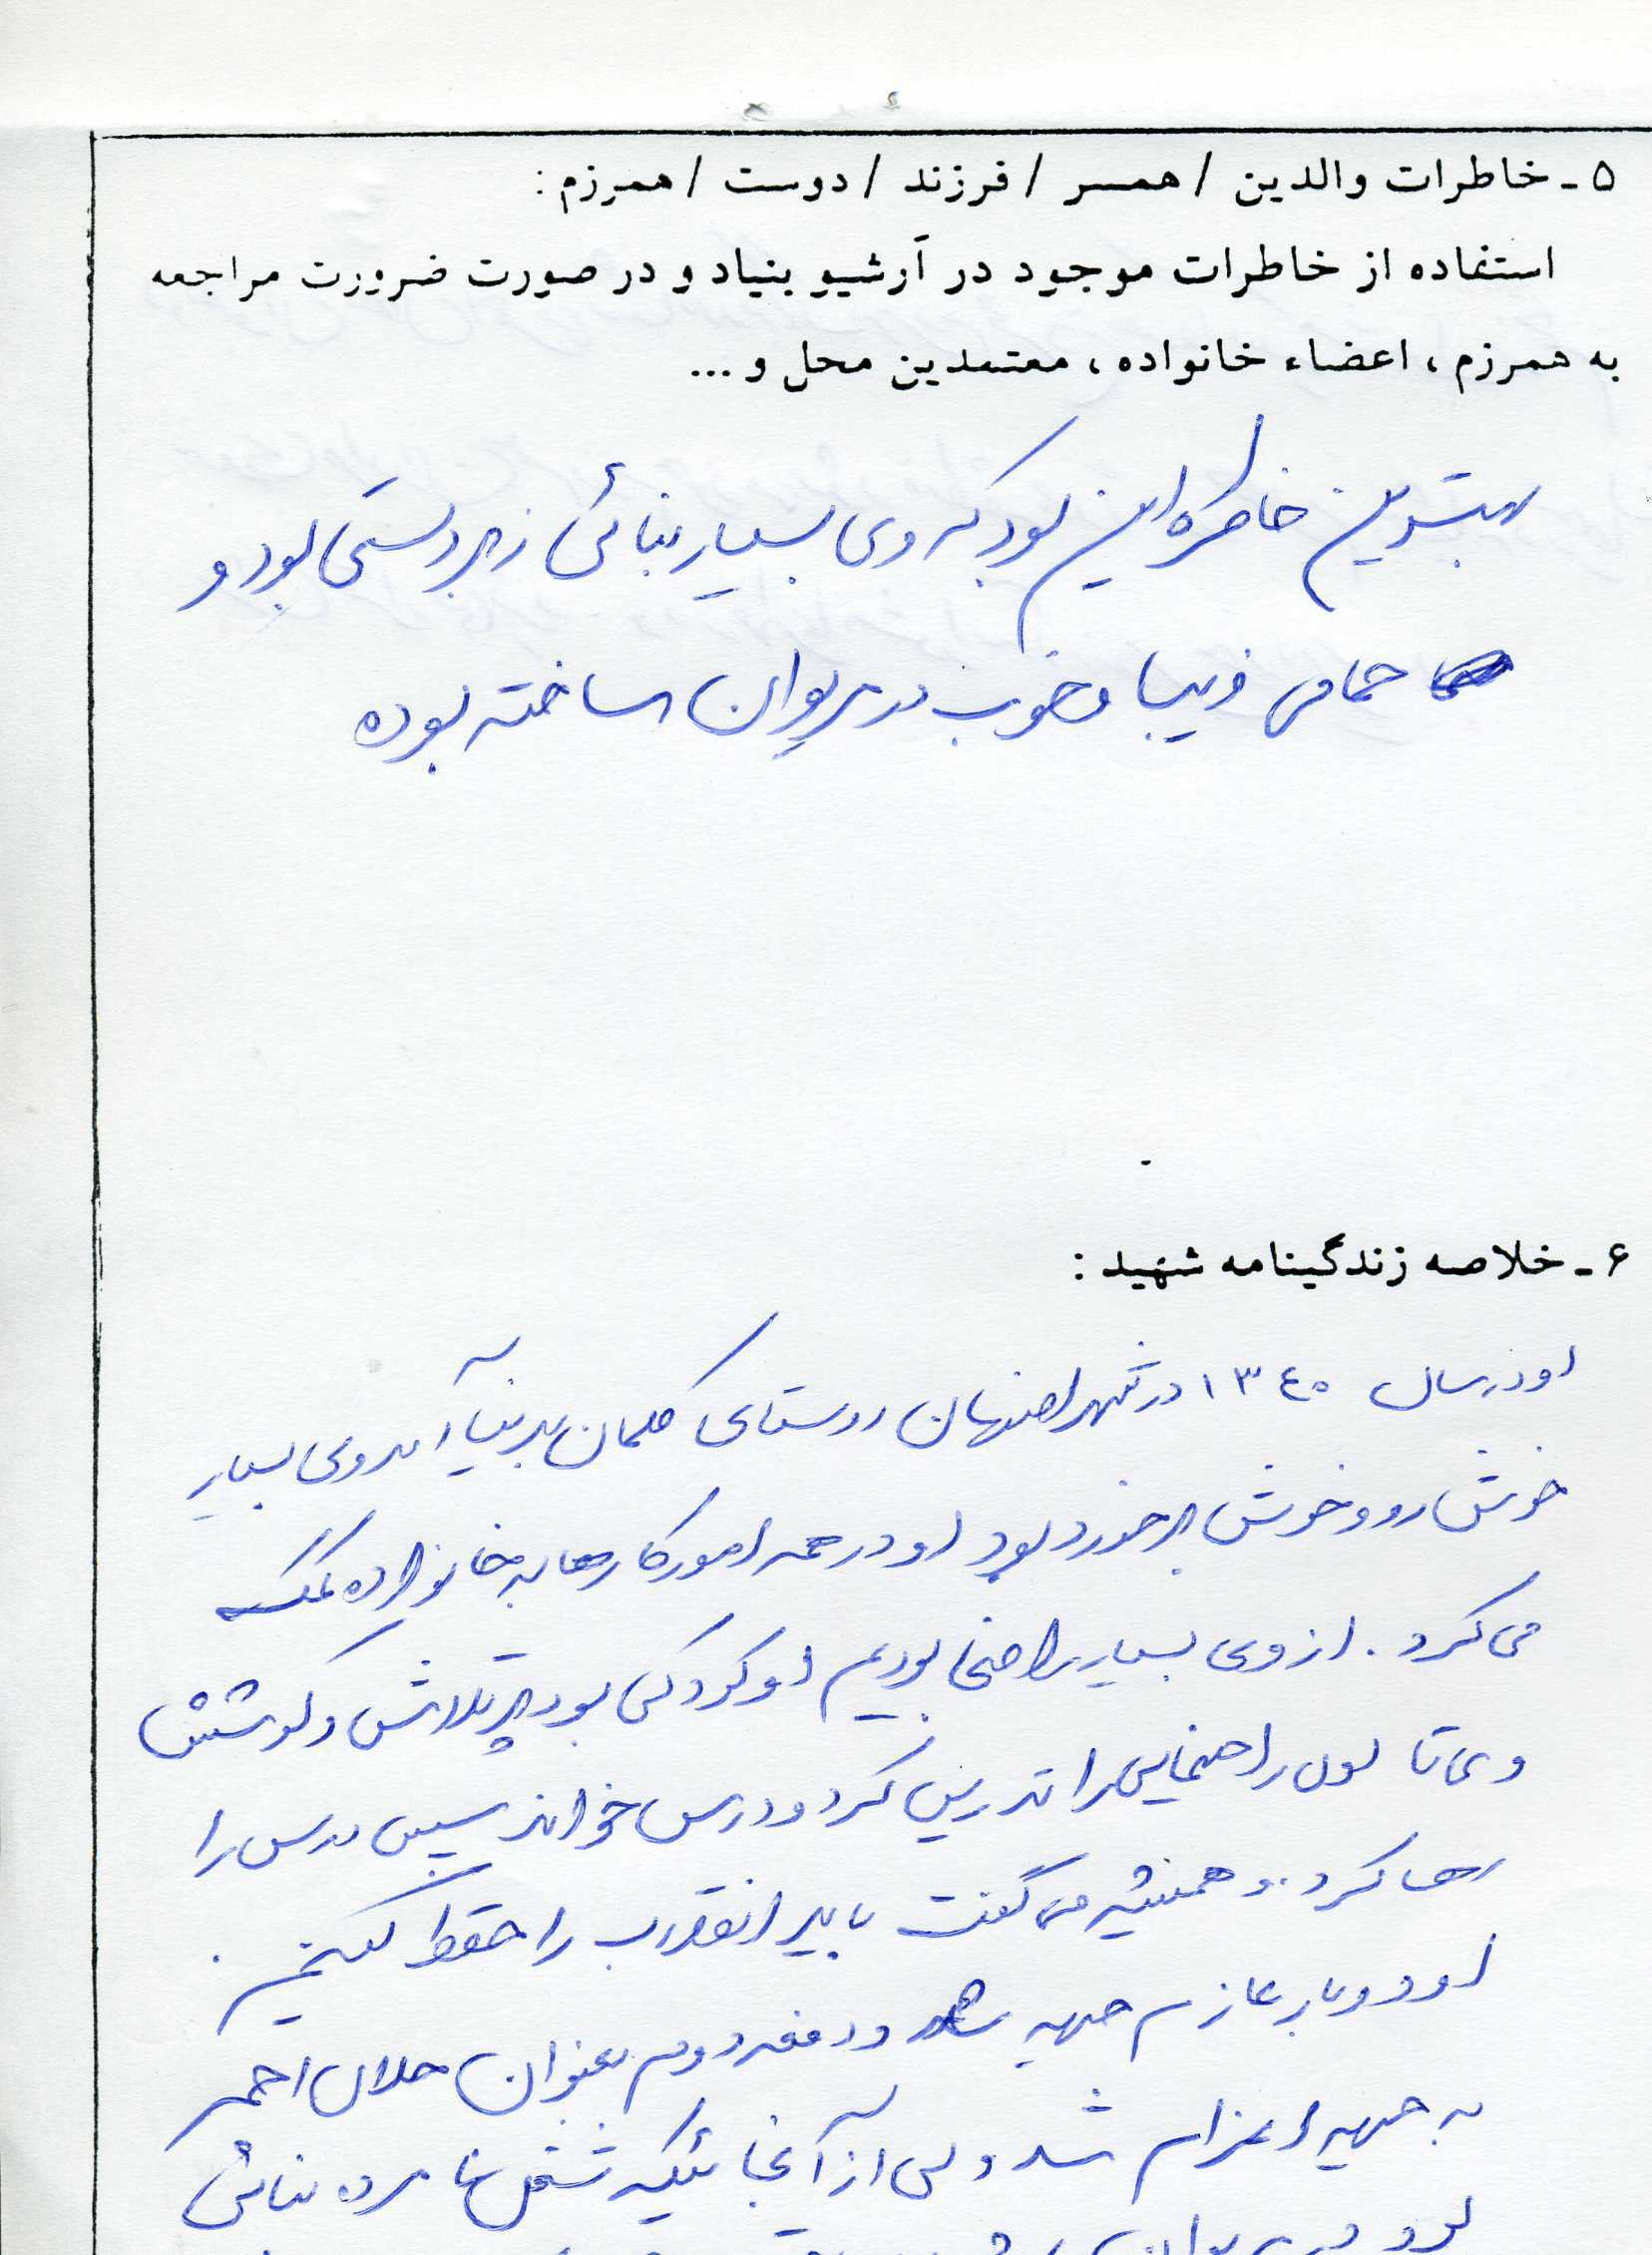 ۵ ـ خاطرات والدین / همسر / فرزند / دوست / همرزم :
استفاده از خاطرات موجود در آرشیو بنیاد و در صورت ضرورت مراجعه
به همرزم ، اعضاء خانواده ، معتمدین محل و ...
بهترین خاطره این بود که وی بسیار بنائی زبردستی بود و
حمامی زیبا و خوب در مریوان ساخته بوده
۶ ـ خلاصه زندگینامه شهید :
او در سال ۱۳۴۰ در شهر اصفهان روستای بدنیا آمد وی بسیار
خوش رو و خوش برخورد بود او در همه امور کارها به خانواده کمک
می کرد . از وی بسیار راضی بودیم او کودکی بود پر تلاش و کوشش
وی تا اول راهنمایی را تدریس کرد و درس خواند سپس درس را
رها کرد . و همیشه می گفت باید انقلاب را حفظ کنیم .
او دوبار عازم جبهه شد و دفعه دوم بعنوان هلال احمر
به جبهه اعزام شد ولی از آنجائیکه شغل نامبرده بنائی
بود در مریوان